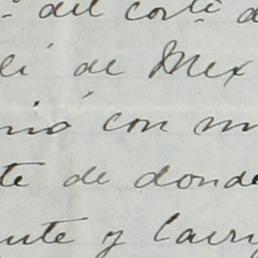 del corte d
li de Mex
nió con m
te de donde
ente y Laur